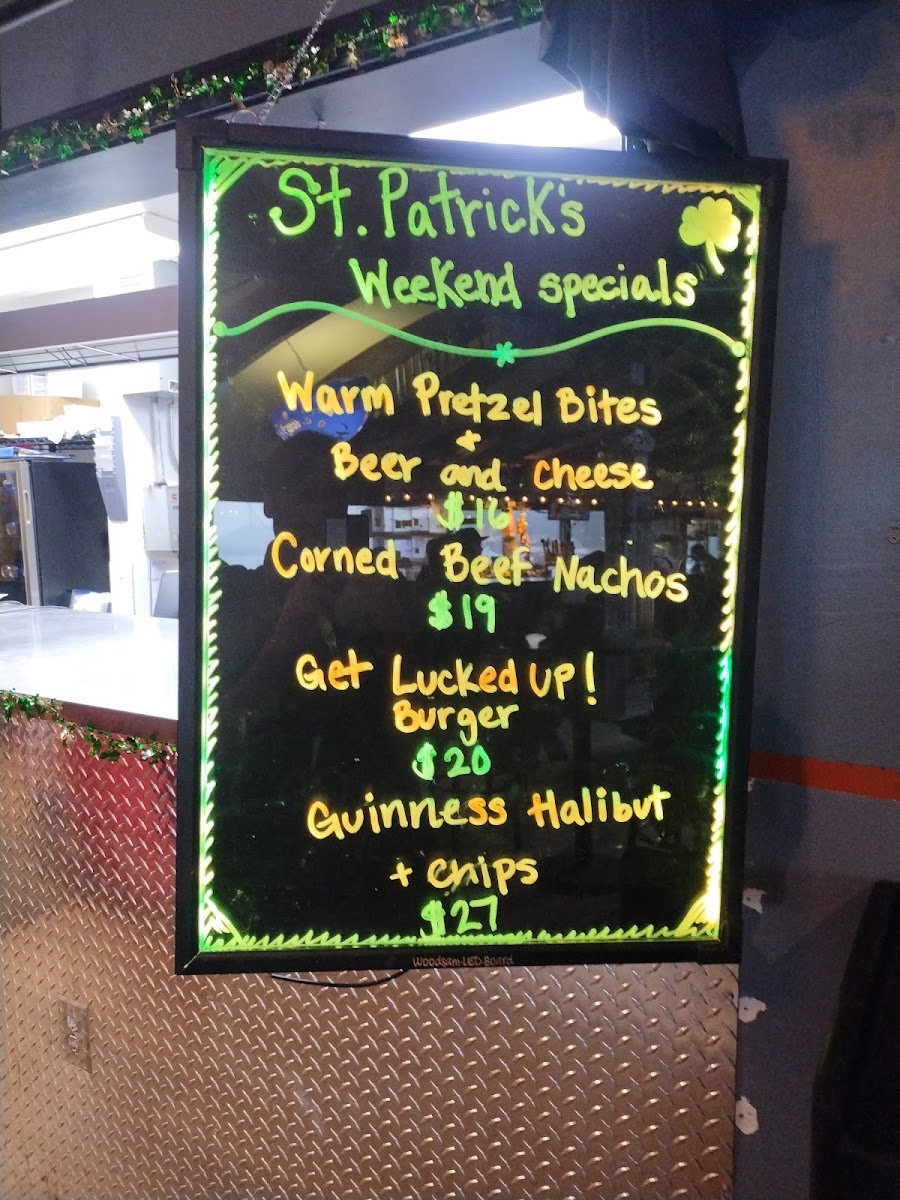 St. Patrick's
Weekend specials
Warm Pretzel Bites
+
Beer and Cheese
$16
Corned Beef Nachos
$19
Get Lucked up!
Burger
$20
Guinness Halibut
+ chips
$27
Woodsam-LED-Board